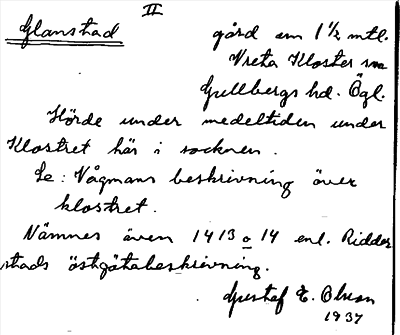 II
Glanstad gård om 1 1/2 mtl.
Vreta Kloster sn
Gullbergs hd. Ögl.
Hörde under medeltiden under
Klostret här i socknen.
Se: Vågmans beskrivning över
klostret.
Nämnes även 1413 o 14 enl. Ridder
stads östgötabeskrivning.
Gustaf E. Olsson
1937